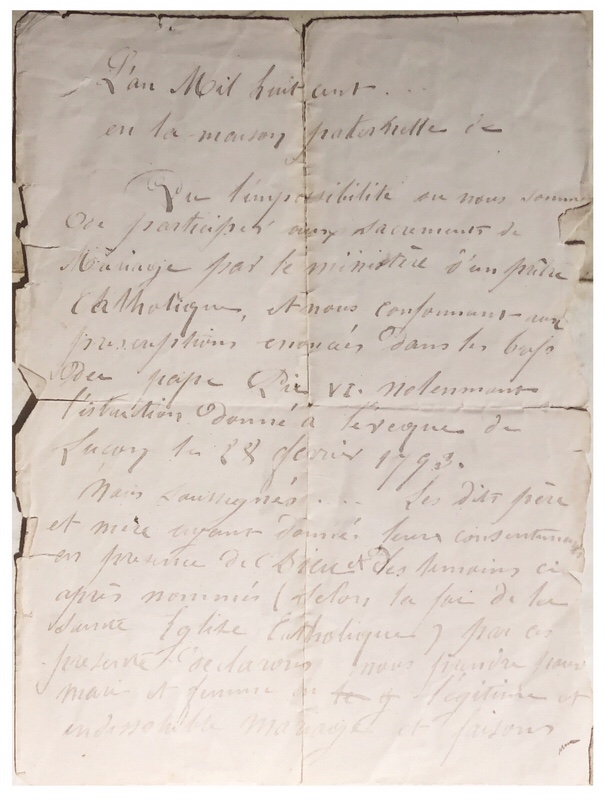 L'an Mil huit cent . . .
en la maison paternelle de
Vu l'impossibilité ou nous somme
de participer aux sacrements de
Mariage par le ministère d'un prêtre
Catholique, et nous conformant aux
prescriptions enoncées dans les brefs
du pape Pie VI. notenment
l'istruction donné à l'evèque de
Luçon le 28 fevrier 1793.
Nous soussignés . . . Les dits père
et mère ayant donné leurs consentement
en presence de Dieu et des temoins ci
après nommés (selon la foi de la
Sainte Eglise Catholique) par ces
presente declarons nous prendre pour
mari et femme en légitime et
indissoluble mariage et faisons